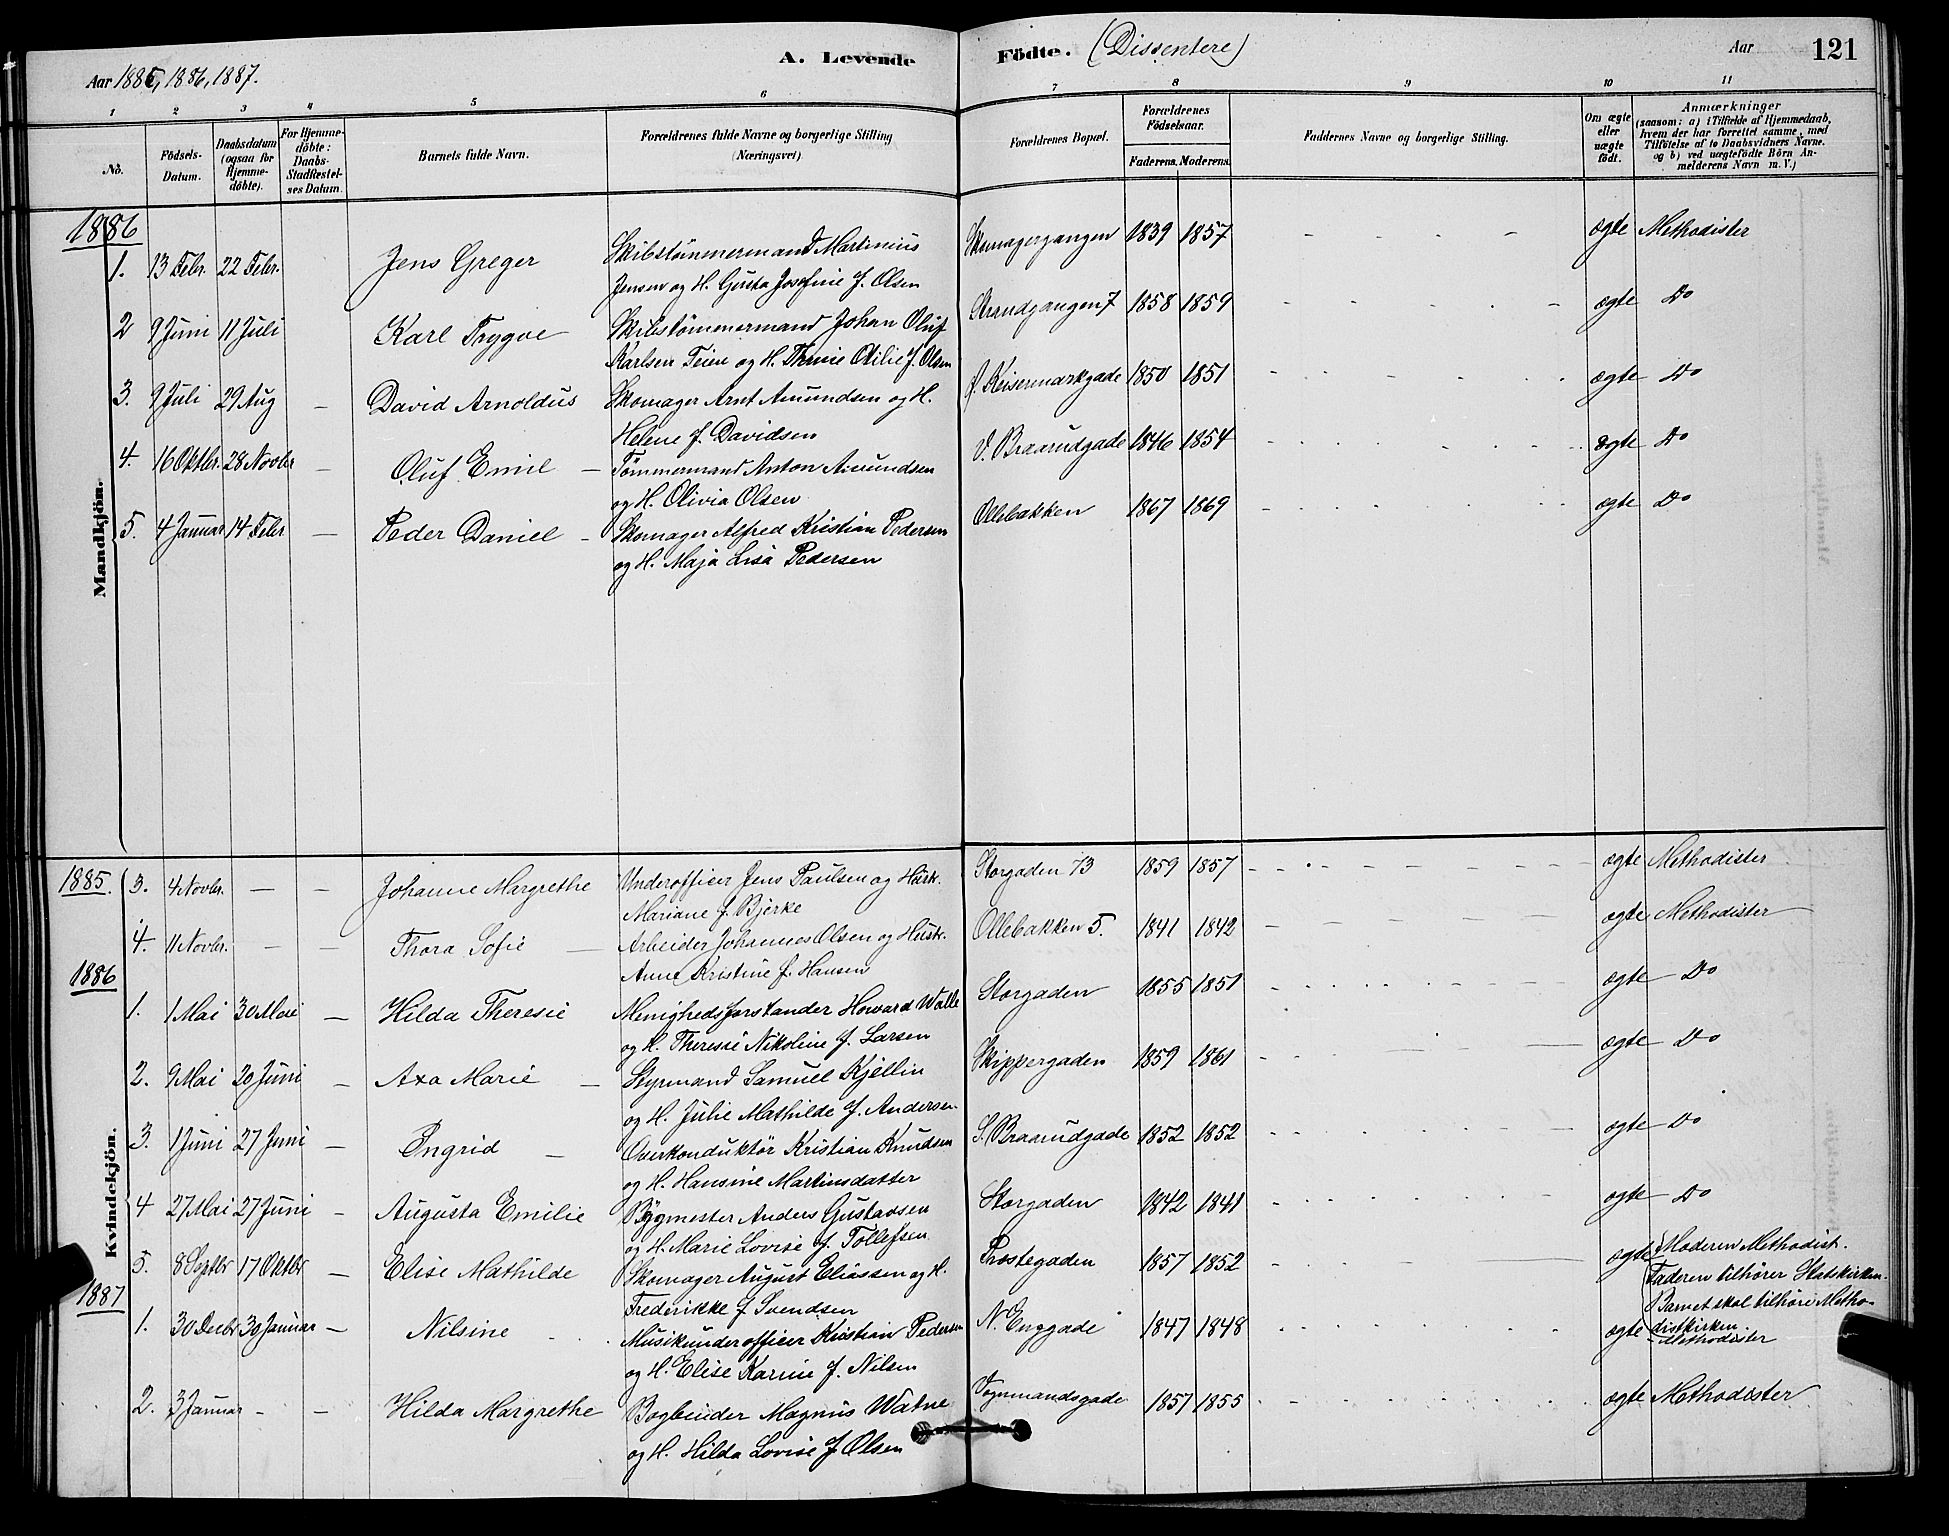 Aar 1885, 1886, 1887. A. Levende Födte. (Dissentere) Aar 121
1 2 3 4 5 6 7 8 9 10 11
No.
Födsels-Datum.
Daabsdatum (ogsaa for Hjemme-döbte).
For Hjemme-döbte: Daabs-Stadfæstel-ses Datum.
Barnets fulde Navn.
Forældrenes fulde Navne og borgerlige Stilling (Næringsvei)
Forældrenes Bopæl.
Forældrenes Födselsaar.
Faderens. Moderens.
Faddernes Navne og borgerlige Stilling.
Om ægte eller uægte födt.
Anmærkninger
(saasom: a) i Tilfælde af Hjemmedaab,
hvem der har forrettet samme, med
Tilföielse af to Daabsvidners Navne.
og b) ved uægtefödte Börn An-
melderens Navn m. V.)
Mandkjön.
1886
1. 13 Febr. 22 Febr. Jens Greger Skibstømmermand Martinius Skomagergangen 1839 1857 - - - - ægte Methodister
Jensen og H. Gusta Josefine f. Olsen
2 9 Juni 11 Juli Karl Trygve Skibstømmermand Johan Oluf Strandgangen 7 1858 1859 - - - - ægte Do
Karlsen Teien og H. Otilie f. Olsen
3. 9 Juli 29 Aug - David Arnoldus Skomager Arnt Amundsen og H. Keisemarkgade 1850 1851 - - - - ægte Do
Helene f. Davidsen
4. 16 Oktbr. 28 Novbr - Oluf Emil - Tømmermand Anton Amundsen V. Braarudgade 1846 1854 - - - - ægte Do
og H. Olivia Olsen
5. 4 Januar 14 Febr - Peder Daniel - Skomager Alfred Kristian Pedersen Ollebakken 1867 1869 - - - - ægte Do
og H. Maja Lisa Pedersen
Kvindekjön.
1885. 3. 4 Novbr. - - Johanne Margrethe Underofficer Jens Paulsen og Hustr. Storgaden 73 1859 1857 - - - - ægte Methodister
Mariane f. Bjerke
4. 11 Novbr. - - Thora Sofie - Arbeider Johannes Olsen og Hustr. Ollebakken 5. 1841 1842 - - - - ægte Methodister
Anne Kristine f. Hansen
1886
1. 1 Mai 30 Mai - Hilda Theresie Menighedsforstander Howard Walle Storgaden 1855 1851 - - - - ægte Do
og H. Theresie Nikoline f. Larsen
2. 9 Mai 20 Juni - Axa Marie - Styrmand Samuel Kjellin Skippergaden 1859 1861 - - - - ægte Do
og H. Julie Mathilde f. Andersen
3. 1 Juni 27 Juni - Ingrid - Overkonduktør Kristian Knudsen S. Braarudgade 1852 1852 - - - - ægte Do
og H. Hansine Martinsdatter
4 27 Mai 27 Juni - Augusta Emilie Bygmester Anders Gustavsen Storgaden 1842 1841 - - - - ægte Do
og H. Marie Lovise f. Tollefsen
5. 8 Septbr 17 Oktbr - Elise Mathilde Skomager August Eliassen og H. Prostegaden 1857 1852 - - - - ægte Moderen Methodist.
Frederikke f Svendsen Faderen tilhører Statskirken.
Barnet skal tilhøre Metho-
distkirken
1887
1. 30 Decbr 30 Januar - Nilsine - Musikunderofficer Kristian Pedersen N. Enggade 1847 1848 - - - - ægte Methodister
og H. Elise Karine f. Nilsen
2. 3 Januar - - Hilda Margrethe Bogbinder Magnus Watne Vognmandsgade 1857 1855 - - - - ægte Methodister
og H. Hilda Lovise f Olsen